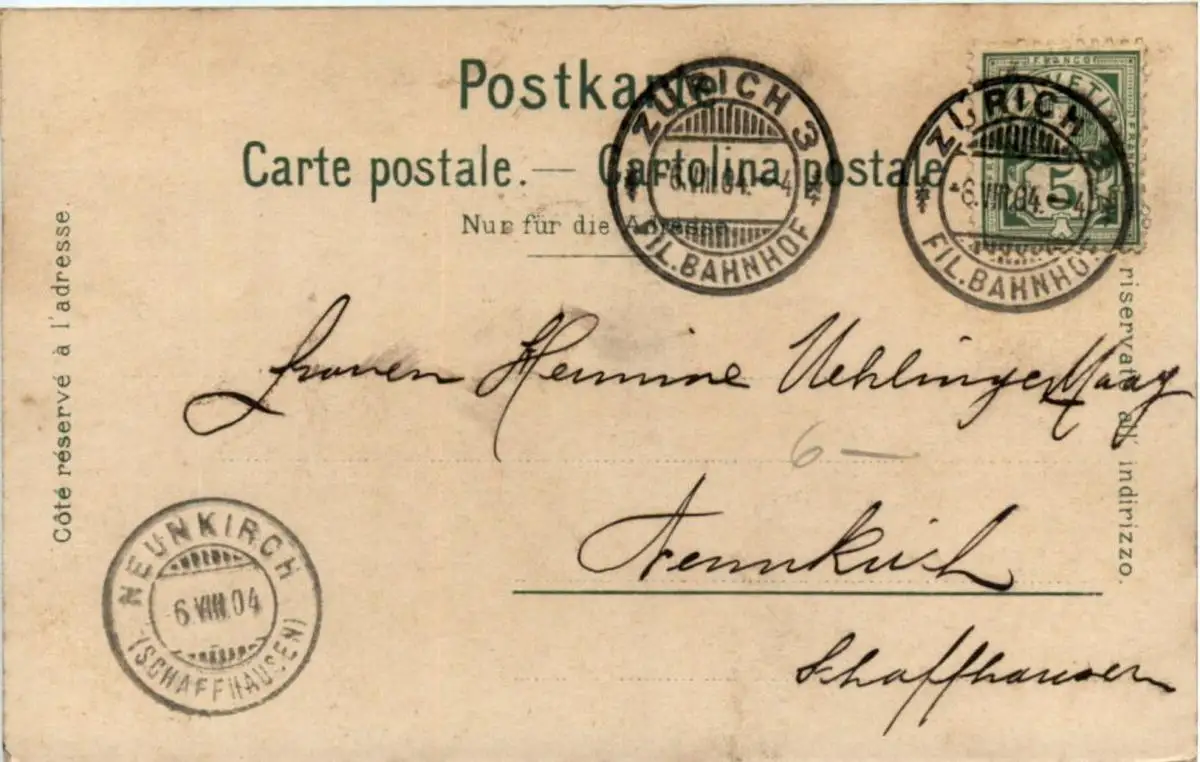 Postkarte
Carte postale. — Cartolina postale
Nur für die Adresse
Côté réservé à l'adresse.
riservato all' indirizzo.
FRANCO
HELVETIA
5
ZÜRICH 3
6.VIII.04.-4
FIL.BAHNHOF
ZÜRICH 3
-6.VIII.04.-4
FIL.BAHNHOF
Frauen Hermine Uehlinger Maag
6 —
Neunkirch
Schaffhausen
NEUNKIRCH
6.VIII.04
(SCHAFFHAUSEN)